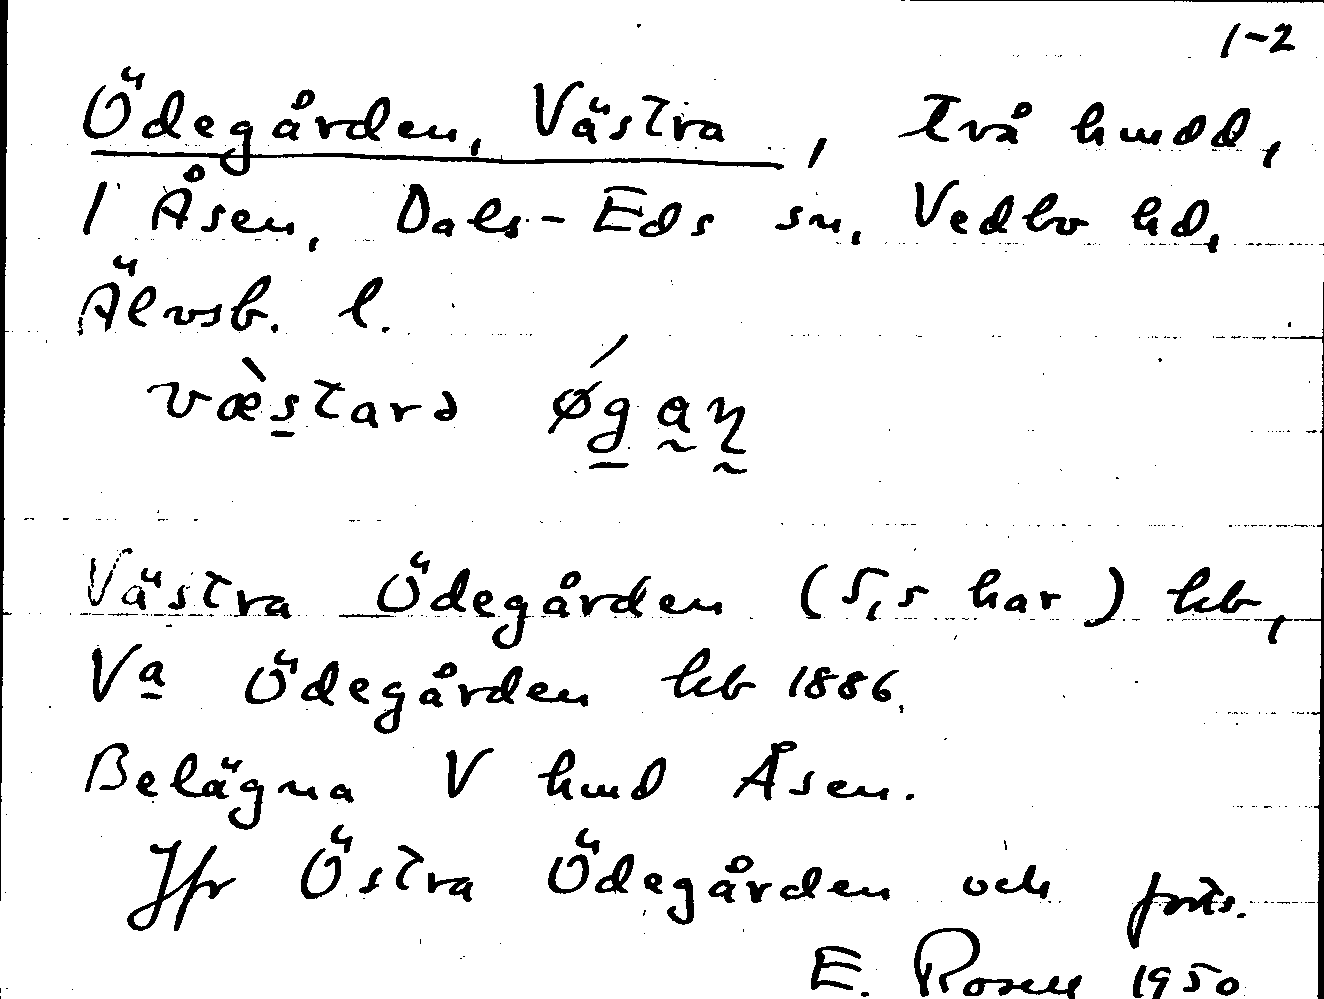 1-2
Ödegården, Västra, två hmdd,
1 Åsen, Dals-Eds sn, Vedbo hd,
Älvsb. l.
væ̀starə ǿgan̥
Västra Ödegården (5,5 har) kb,
Vª Ödegården kb 1886.
Belägna V hmd Åsen.
Jfr Östra Ödegården och forts.
E. Rosell 1950